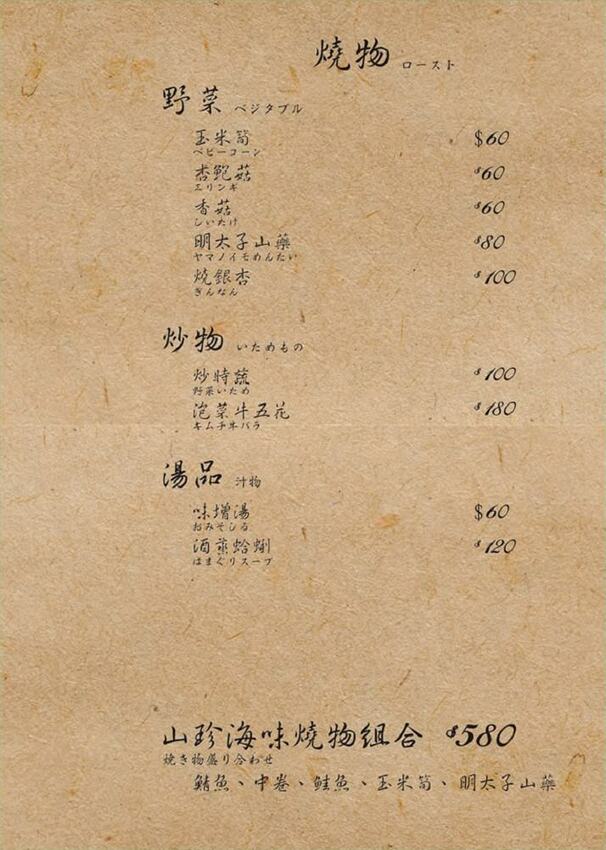 燒物 ロースト
野菜 ベジタブル
玉米筍 $60
ベビーコーン
杏鮑菇 $60
エリンギ
香菇 $60
しいたけ
明太子山藥 $80
ヤマノイモめんたい
燒銀杏 $100
ぎんなん
炒物 いためもの
炒時蔬 $100
野菜いため
泡菜牛五花 $180
キムチ牛バラ
湯品 汁物
味增湯 $60
おみそしる
酒蒸蛤蜊 $120
はまぐりスープ
山珍海味燒物組合 $580
焼き物盛り合わせ
鯖魚、中卷、鮭魚、玉米筍、明太子山藥